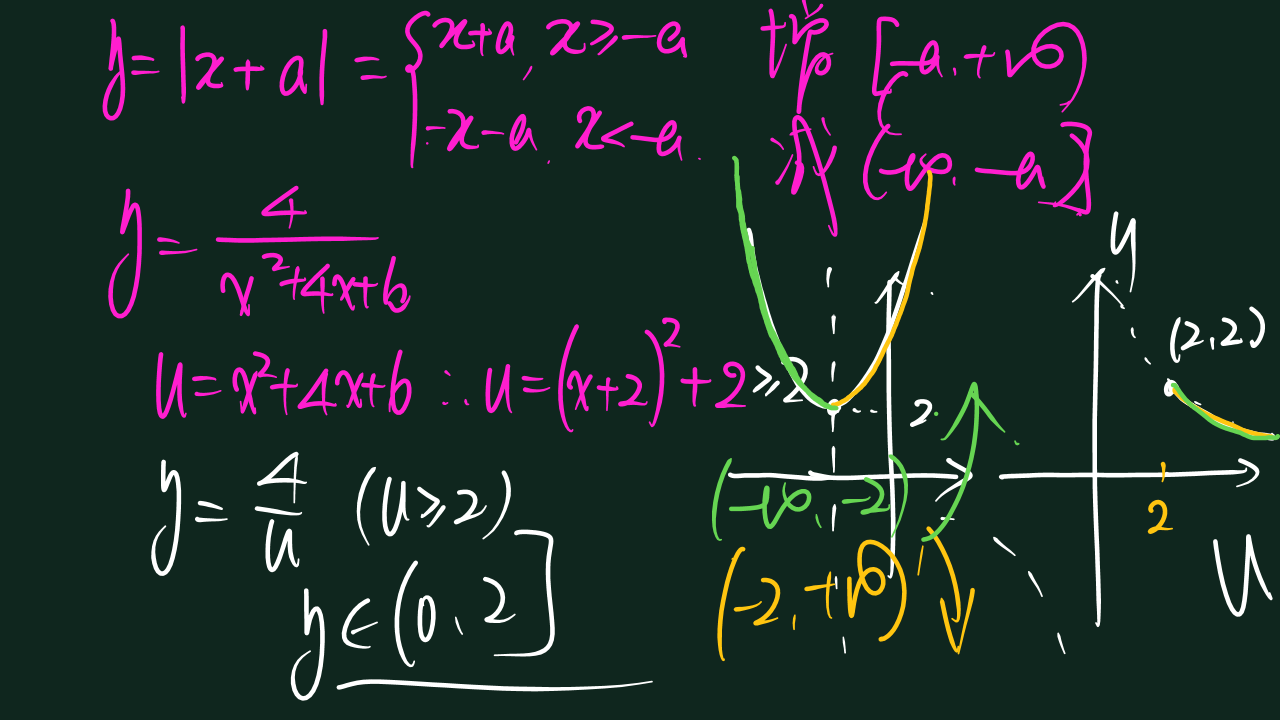 y = |x + a| = { x+a, x ≥ -a 增 [-a, +∞)
-x-a, x < -a. 减 (-∞, -a]
y = 4/(x²+4x+6)
u = x²+4x+6 ∴ u = (x+2)² + 2 ≥ 2
y = 4/u (u ≥ 2)
y ∈ (0, 2]
2
(-∞, -2)
(-2, +∞)
y
(2,2)
2
u